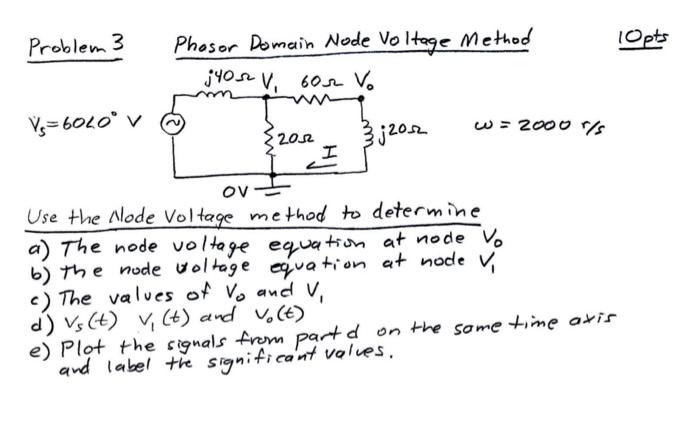 Problem 3 Phasor Domain Node Voltage Method 10pts
j40Ω V₁ 60Ω V₀
Vₛ=60∠0° V
20Ω
j20Ω
ω = 2000 r/s
I
0V
Use the Node Voltage method to determine
a) The node voltage equation at node V₀
b) the node voltage equation at node V₁
c) The values of V₀ and V₁
d) Vₛ(t) V₁(t) and V₀(t)
e) Plot the signals from part d on the same time axis
and label the significant values.